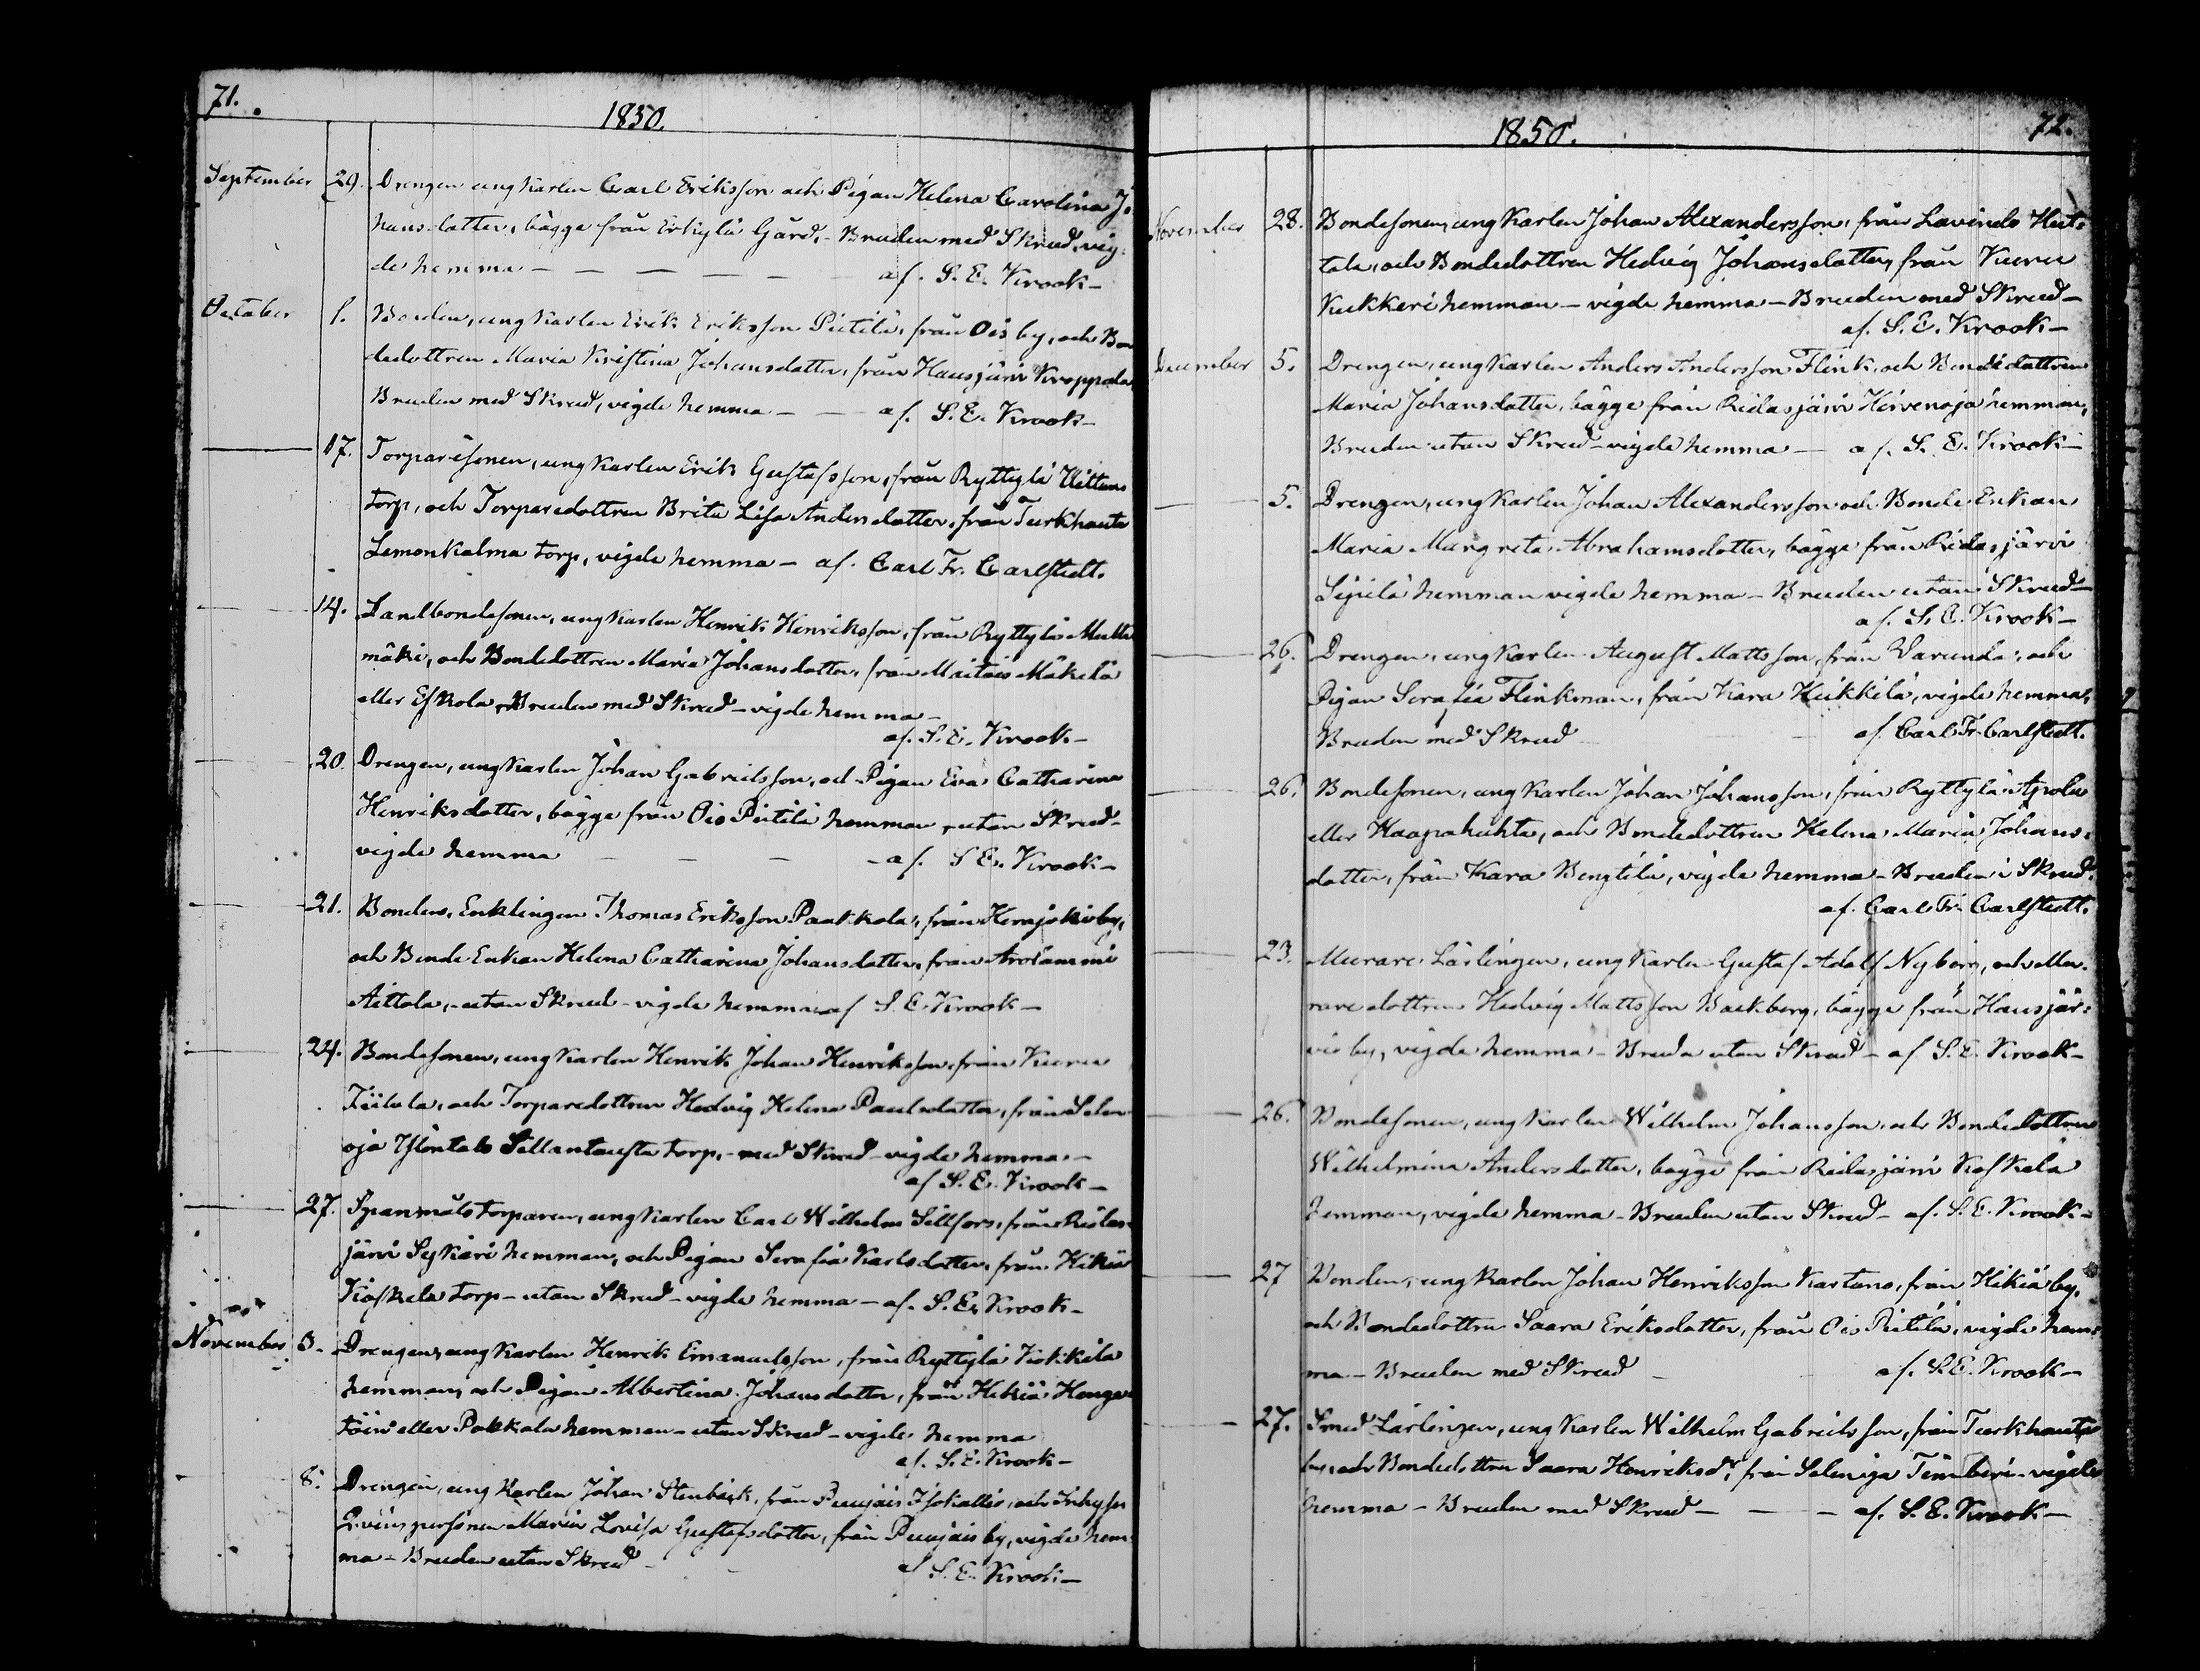 71.
1850.
September 29. Drengen ung Karlen Carl Eriksson och Pigan Helena Carolina Jo
hansdotter, bägge från Erkylä Gård, - Bruden med Skrud, vig
de hemma — — — — — af. S. E. Krook —
October 1. Bonden, ung Karlen Erik Eriksson Pietilä, från Ois by, och Bon
dedottren Maria Kristina Johansdotter, från Hausjärvi Kroppala
Bruden med Skrud, vigde hemma — — af. S. E. Krook —
17. Torparesonen, ung Karlen Erik Gustafsson, från Ryttylä Uittous
torp, och Torparedottren Brita Lisa Andersdotter, från Turkhauta
Lemonkalma torp, vigde hemma — af. Carl Fr. Carlstedt.
14. Landbondesonen, ung Karlen Henrik Henriksson, från Ryttylä Multi
mäki, och Bondedottren Maria Johansdotter, från Maitois Mäkelä
eller Eskola, Bruden med Skrud — vigde hemma —
af. S. E. Krook —
20. Drengen, ung Karlen Johan Gabrielsson, och Pigan Eva Catharina
Henriksdotter, bägge från Ois Pietilä hemman, utan Skrud -
vigde hemma — — — — af. S E. Krook —
21. Bonden, Enklingen Thomas Eriksson Paakkola, från Hernjokis by,
och Bonde Enkan Helena Catharina Johansdotter, från Arolammi
Aittola, - utan Skrud - vigde hemma af S. E. Krook —
24. Bondesonen, ung Karlen Henrik Johan Henriksson, från Kuru
och Torparedottren Hedvig Helena Paulsdotter, från Selen
oja Sillantausta torp, - med Skrud - vigde hemma. —
af S. E. Krook —
27. Spanmåls torparen, ung Karlen Carl Wilhelm Sillfors, från Ridas
järvi Sykäri hemman, och Pigan Serafia Karlsdotter, från Hikiä
Kaskela torp - utan Skrud - vigde hemma — af. S. E. Krook -
November 3. Drengen, ung Karlen Henrik Emanuelsson, från Ryttylä
hemman, och Pigan Albertina Johansdotter, från Hikiä
eller Pakkala hemman - utan Skrud - vigde hemma
af. S. E. Krook —
8. Drengen, ung Karlen Johan Stenbäck, från Puujais Isokallio, och Inhyses
Qvinspersonen Maria Lovisa Gustafsdotter, från Puujais by, vigde hem
ma - Bruden utan Skrud - - af S. E. Krook —
72.
1850.
November 28. Bondesonen, ung Karlen Johan Alexandersson, från Lavinds Hut:
tala, och Bondedottren Hedvig Johansdotter, från Kuru
Kukkeri hemman — vigde hemma — Bruden med Skrud —
af. S. E. Krook —
December 5. Drengen, ung Karlen Anders Andersson Flink, och Bondedottren
Maria Johansdotter, bägge från Ridasjärvi Hirvenoja hemman,
Bruden utan Skrud — vigde hemma — af. S. E. Krook —
5. Drengen, ung Karlen Johan Alexandersson och Bonde Enkan
Maria Margreta Abrahamsdotter, bägge från Ridasjärvi
Sipilä hemman vigde hemma — Bruden utan Skrud —
af. S. E. Krook —
26. Drengen, ung Karlen August Mattsson, från Varunda, och
Pigan Serafia Flinkman, från Kara Heikkilä, vigde hemma,
Bruden med Skrud — af. Carl Fr. Carlstedt.
26. Bondesonen, ung Karlen Johan Johansson, från Ryttylä
eller Haapahuhta, och Bondedottren Helena Maria Johans:
dotter, från Kara Bengtilä, vigde hemma - Bruden i Skrud.
af. Carl Fr. Carlstedt.
23. Murare Lärlingen, ung Karlen Gustaf Adolf Nyberg, och Mu:
raredottren Hedvig Mattsson Backberg, bägge från Hausjär:
vi by, vigde hemma - Bruden utan Skrud - af S. E. Krook —
26. Bondesonen, ung Karlen Wilhelm Johansson, och Bondedottren
Wilhelmina Andersdotter, bägge från Ridasjärvi Koskela
hemman, vigde hemma - Bruden utan Skrud - af. S. E. Krook -
27 Bonden, ung Karlen Johan Henriksson Kartano, från Hikiä by,
och Bondedottren Saara Eriksdotter, från Ois Pietilä, vigde hem:
ma - Bruden med Skrud - af. S. E. Krook —
27. Smed Lärlingen, ung Karlen Wilhelm Gabrielsson, från Turkhauta
by, och Bondedottren Saara Henriksdr, från Selenoja Timberi - vigde
hemma - Bruden med Skrud — — — af. S. E. Krook —